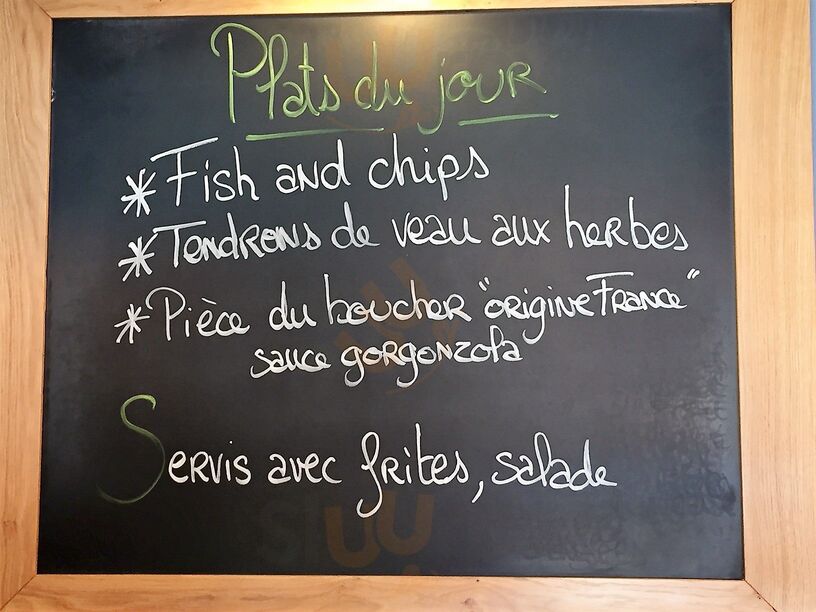 Plats du jour
* Fish and chips
* Tendrons de veau aux herbes
* Pièce du boucher "origine France"
sauce gorgonzola
Servis avec frites, salade